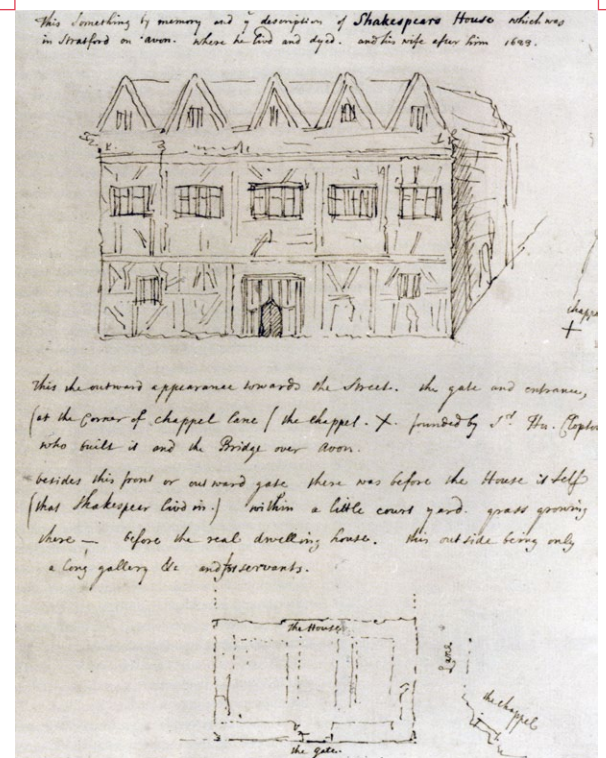 This Something by memory and y description of Shakespears House which was
in Stratford on avon. where he livd and dyed. and his wife after him 1623.
chappel
This the outward appearance towards the Street. the gate and entrance,
(at the Corner of chappel lane / the chappel. X. founded by Sr. Hu. Clopton
who built it and the Bridge over avon.
besides this front or outward gate there was before the House it Self
(that Shakespear livd in.) within a little court yard. grass growing
there — before the real dwelling house. this outside being only
a long gallery &c and for servants.
the House
Lane
the chappel
the gate.